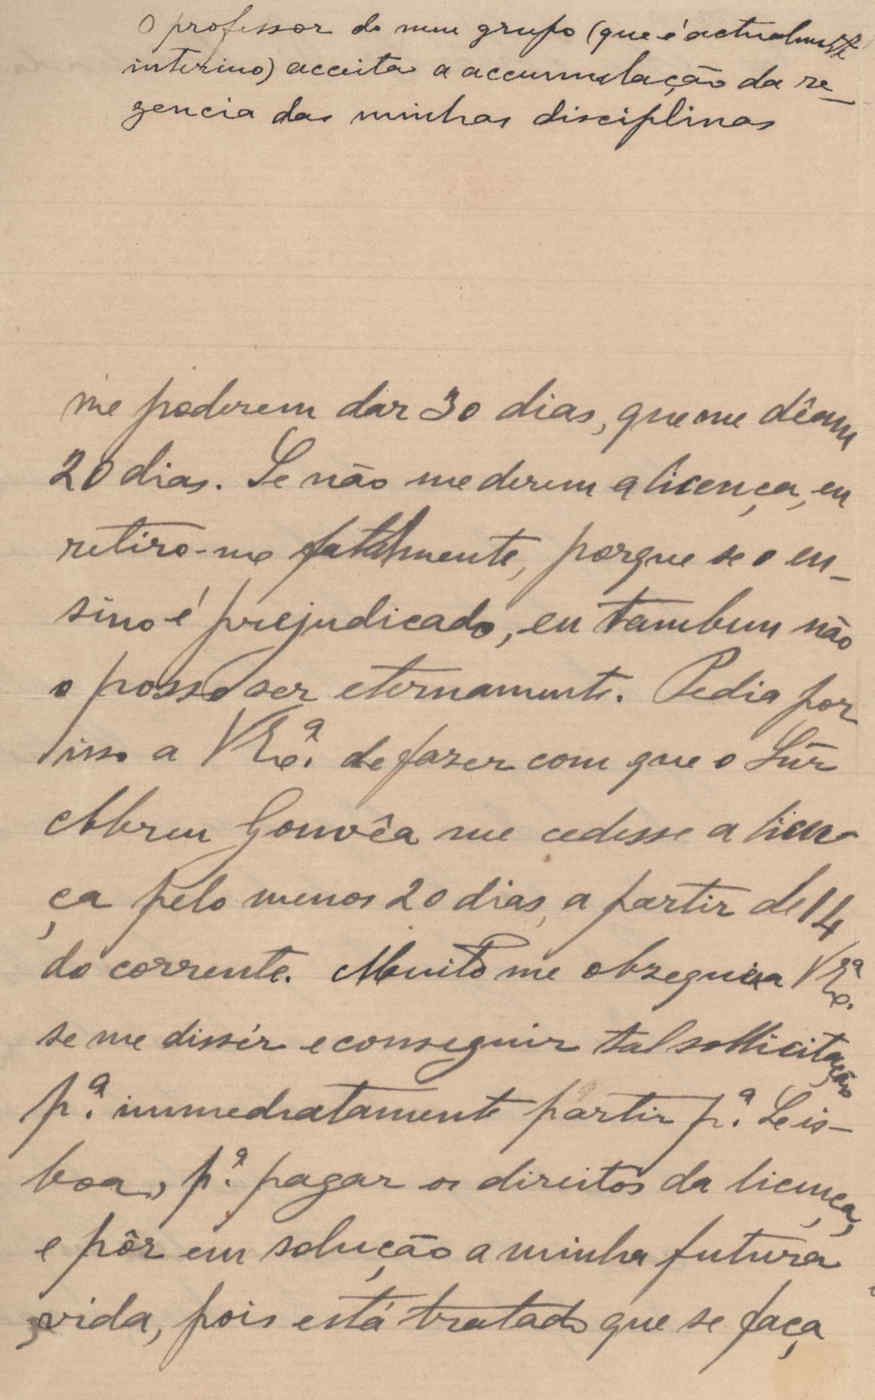 O professor do meu grupo (que é actualmente
interino) acceita a accumulação da re-
gencia das minhas disciplinas
me poderem dar 30 dias, que me dêem
20 dias. Se não me derem a licença, eu
retiro-me fatalmente, porque se o en-
sino é prejudicado, eu tambem não
o posso ser eternamente. Pedia por
isso a VExª. de fazer com que o Snr
Abreu Gouvêa me cedesse a licen-
ça pelo menos 20 dias, a partir de 14
do corrente. Muito me obsequiea VExª.
se me dissér e conseguir tal sollicitação
pª. immediatamente partir pª. Leis-
boa, pª. pagar os direitos da licença,
e pôr em solução a minha futura
vida, pois está tratado que se faça